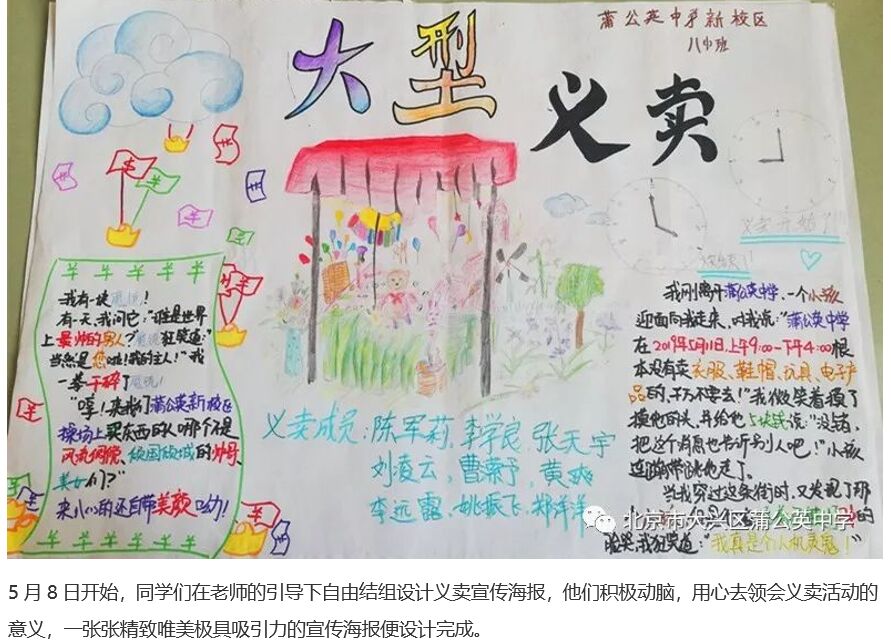 蒲公英中学新校区
八(4)班
大型
义卖
义卖开始了!
我有一块魔镜!
有一天,我问它:"谁是世界
上最炸的男人?魔镜狂笑道:"
当然是您啦!我的主人!"我
一拳干碎了魔镜!
"嘿!来我们蒲公英新校区
操场上买东西的人哪个不是
风流倜傥、倾国倾城的帅哥、
美女们?"
来八(4)的还自带美颜呦!
义卖成员:陈军莉,李学良,张天宇
刘凌云,曹荣予,黄爽
李远露,姚振飞,郑洋洋
我刚离开蒲公英中学,一个小孩
迎面向我走来,对我说:"蒲公英中学
在2019年5月11日,上午9:00—下午4:00根
本没有卖衣服、鞋帽、玩具、电子产
品的,千万不要去!"我微笑着摸了
摸他的头,并给他5块钱说:"没错,
把这个消息也告诉别人吧!"小孩
连蹦带跳地走了。
当我穿过这条街时,又发现了那
脸笑,我狂笑道:"我真是个人机灵鬼!"
北京市大兴区蒲公英中学
5月8日开始,同学们在老师的引导下自由结组设计义卖宣传海报,他们积极动脑,用心去领会义卖活动的
意义,一张张精致唯美极具吸引力的宣传海报便设计完成。